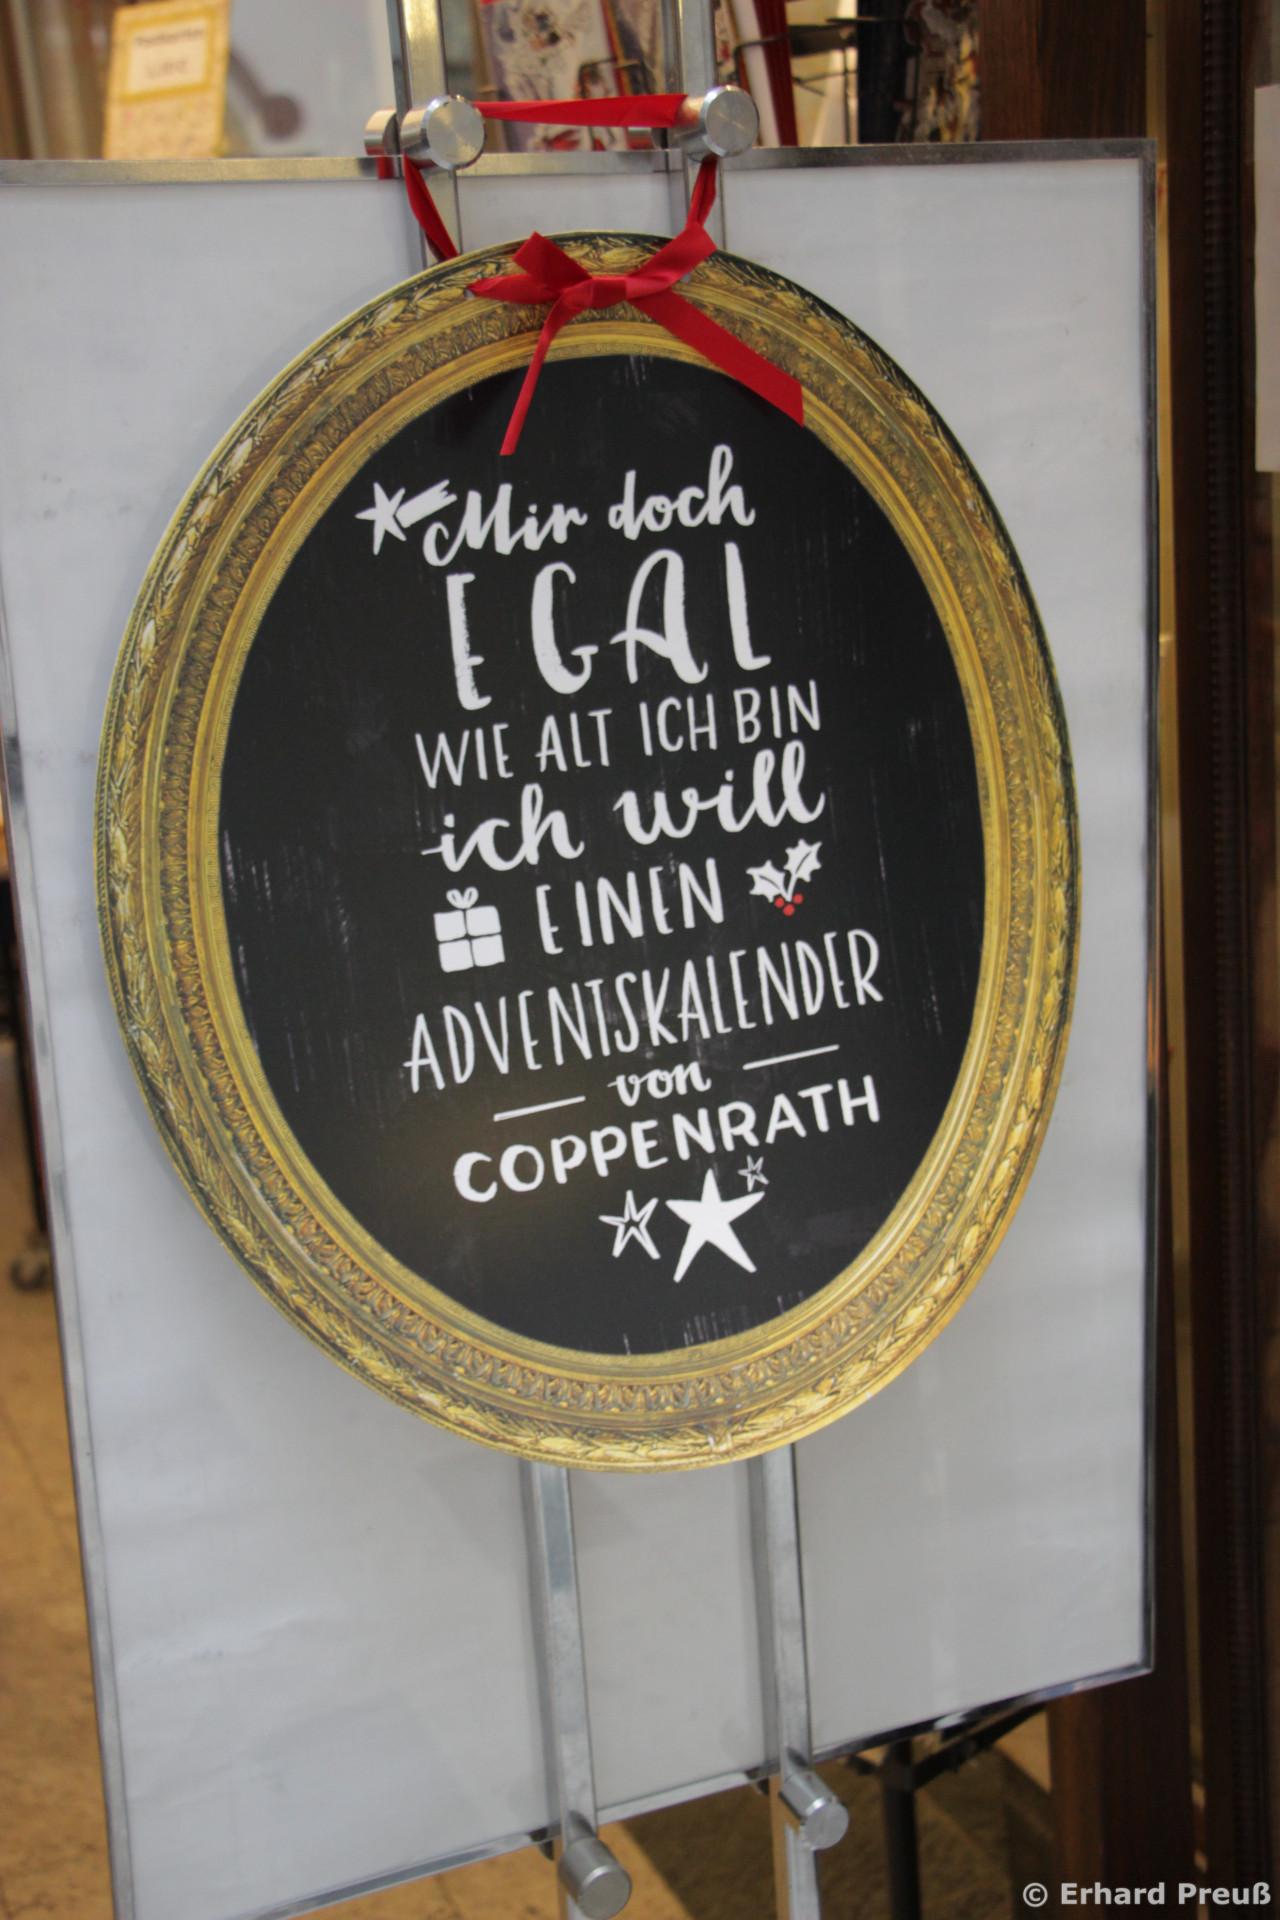 Mir doch
EGAL
WIE ALT ICH BIN
ich will
EINEN
ADVENTSKALENDER
von
COPPENRATH
© Erhard Preuß